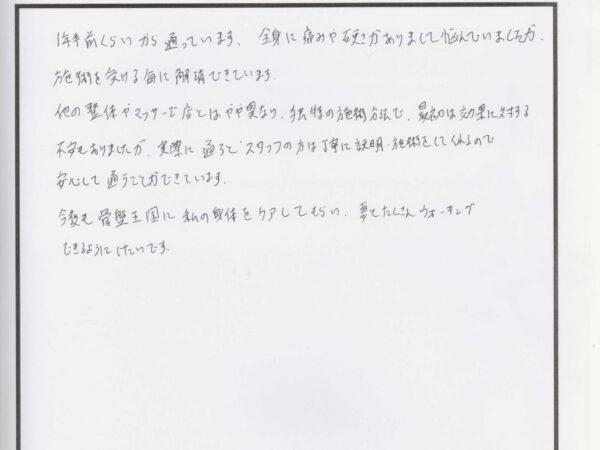 1年半前くらいから通っています。 全身に痛みや硬さがありまして悩んでいましたが、
施術を受ける毎に解消できています。
他の整体やマッサージ店とはやや異なり、独特の施術方法で、最初は効果に対する
不安もありましたが、実際に通うとスタッフの方は丁寧に説明・施術をしてくれるので
安心して通うことができています。
今後も骨盤王国に私の身体をケアしてもらい、 たくさんウォーキング
できるように けたいです。